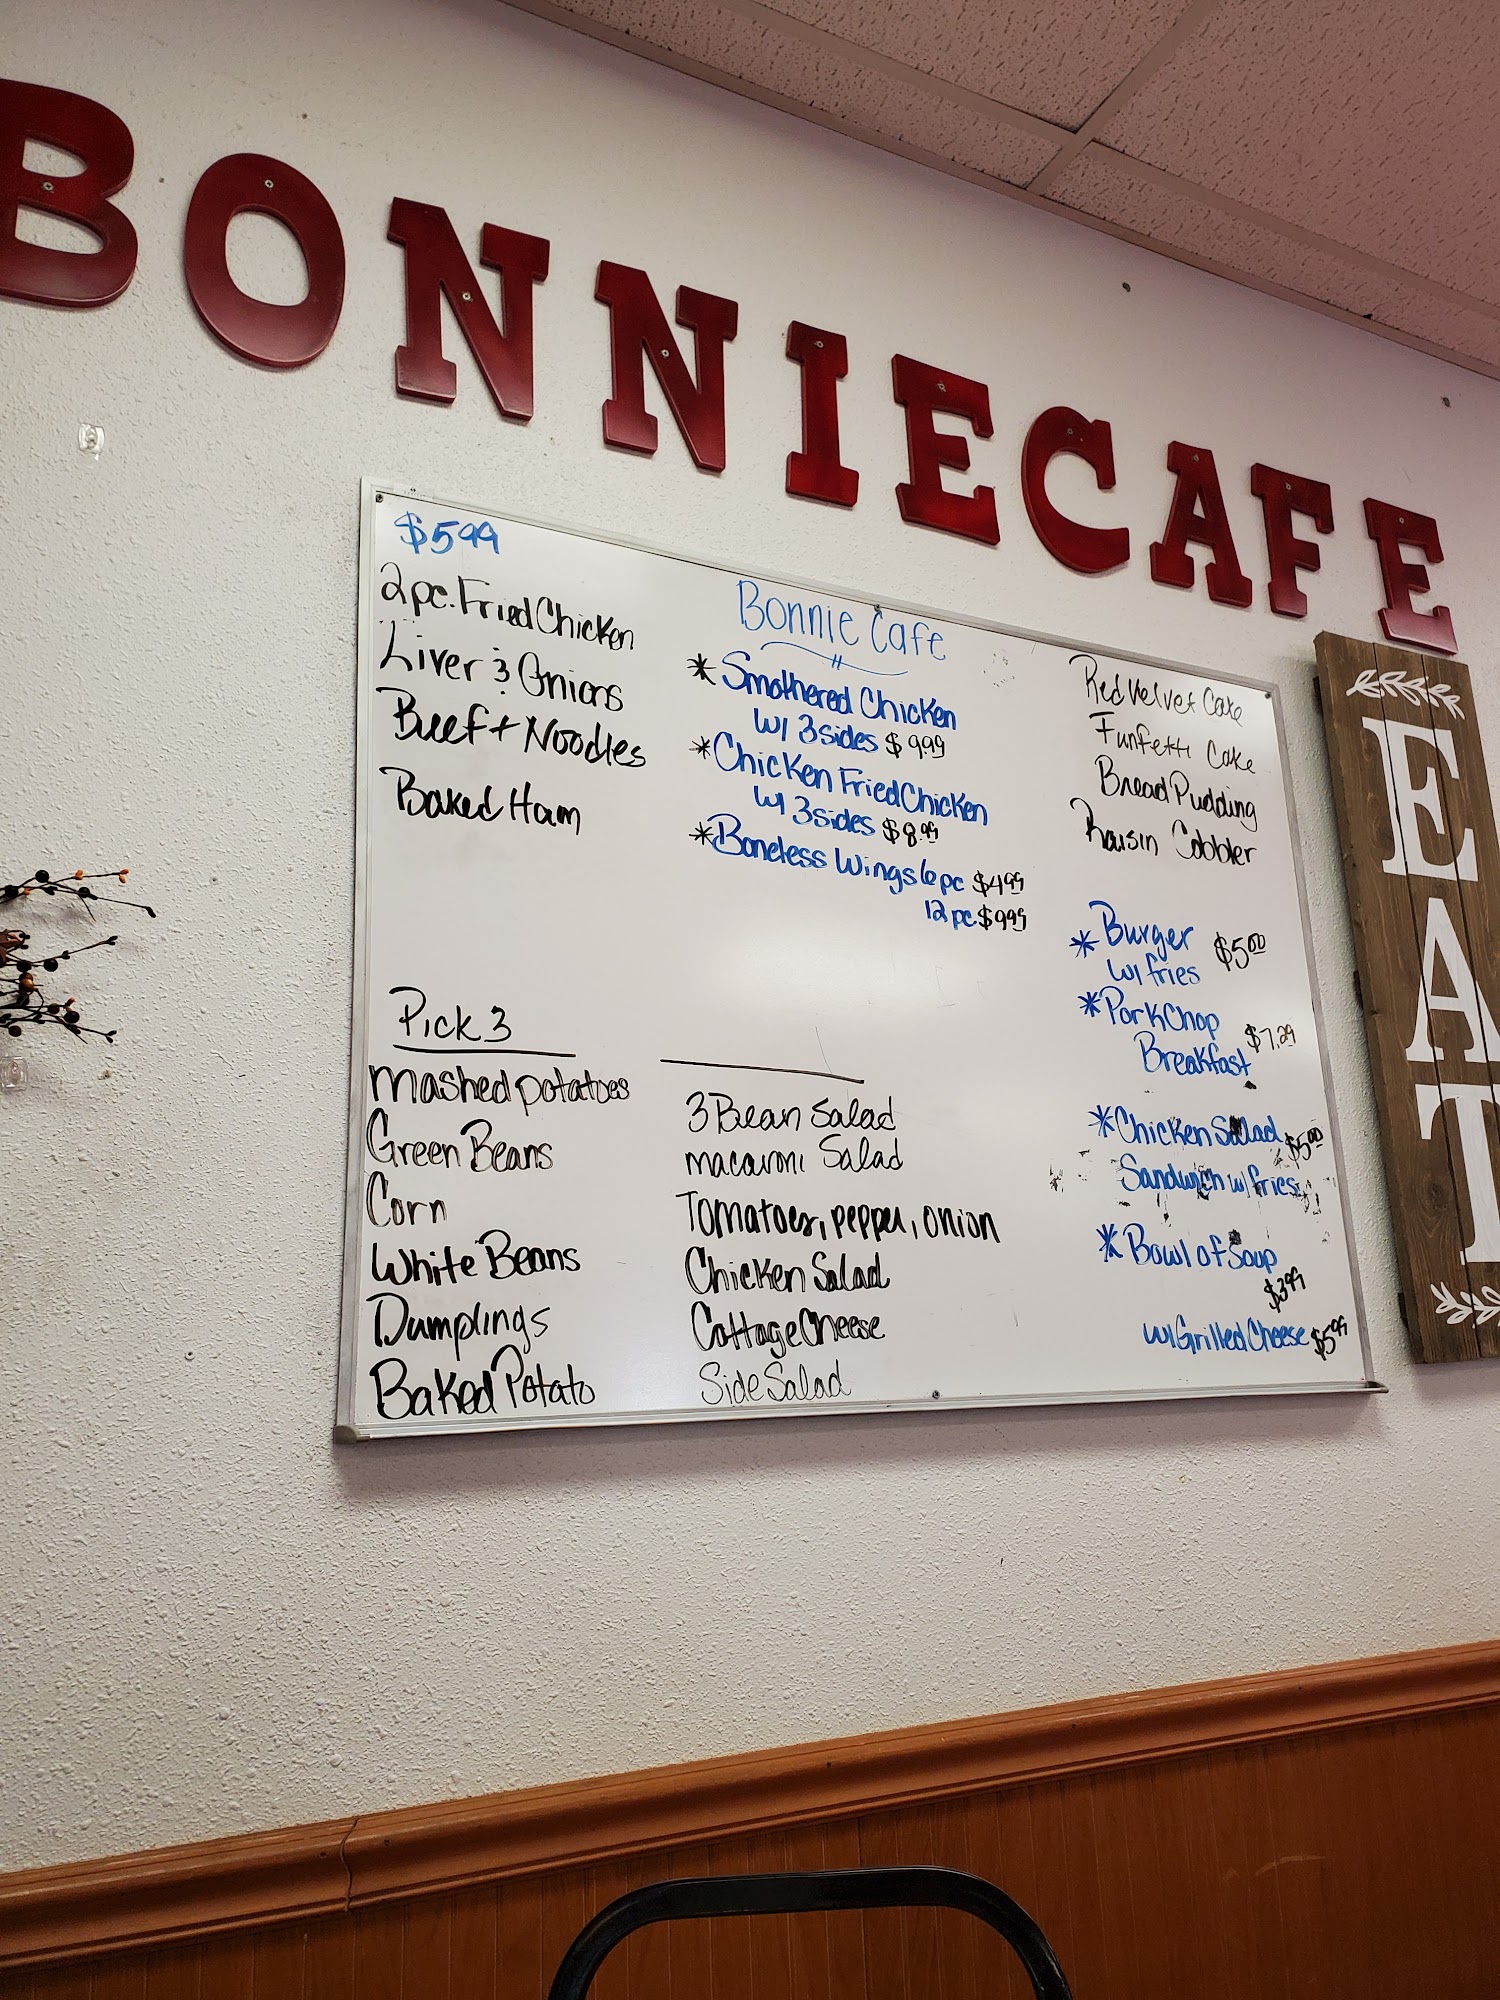 BONNIECAFE
$5.99
2pc. Fried Chicken
Liver & Onions
Beef + Noodles
Baked Ham
Pick 3
Mashed potatoes
Green Beans
Corn
White Beans
Dumplings
Baked Potato
Bonnie Cafe
* Smothered Chicken
w/ 3 sides $9.99
* Chicken Fried Chicken
w/ 3 sides $8.99
* Boneless Wings 6pc $4.99
12pc. $9.99
3 Bean Salad
Macaroni Salad
Tomatoes, pepper, onion
Chicken Salad
Cottage Cheese
Side Salad
Red Velvet Cake
Funfetti Cake
Bread Pudding
Raisin Cobbler
* Burger $5.00
w/ fries
* Pork Chop
Breakfast $7.29
* Chicken Salad $5.00
Sandwich w/ fries
* Bowl of Soup
$3.99
w/ Grilled Cheese $5.99
EAT